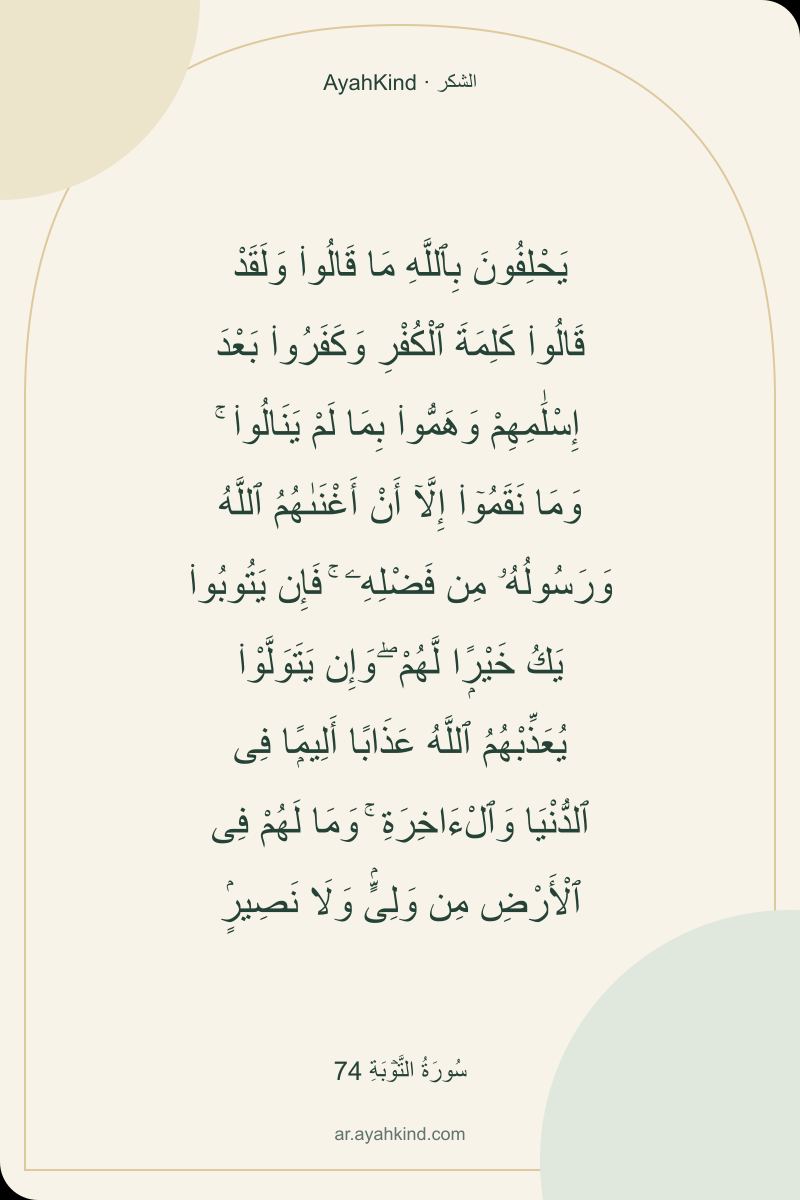 AyahKind · الشكر
يَحْلِفُونَ بِٱللَّهِ مَا قَالُوا۟ وَلَقَدْ
قَالُوا۟ كَلِمَةَ ٱلْكُفْرِ وَكَفَرُوا۟ بَعْدَ
إِسْلَٰمِهِمْ وَهَمُّوا۟ بِمَا لَمْ يَنَالُوا۟ ۚ
وَمَا نَقَمُوٓا۟ إِلَّآ أَنْ أَغْنَىٰهُمُ ٱللَّهُ
وَرَسُولُهُۥ مِن فَضْلِهِۦ ۚ فَإِن يَتُوبُوا۟
يَكُ خَيْرًۭا لَّهُمْ ۖ وَإِن يَتَوَلَّوْا۟
يُعَذِّبْهُمُ ٱللَّهُ عَذَابًا أَلِيمًۭا فِى
ٱلدُّنْيَا وَٱلْـَٔاخِرَةِ ۚ وَمَا لَهُمْ فِى
ٱلْأَرْضِ مِن وَلِىٍّۢ وَلَا نَصِيرٍۢ
سُورَةُ التَّوۡبَةِ 74
ar.ayahkind.com